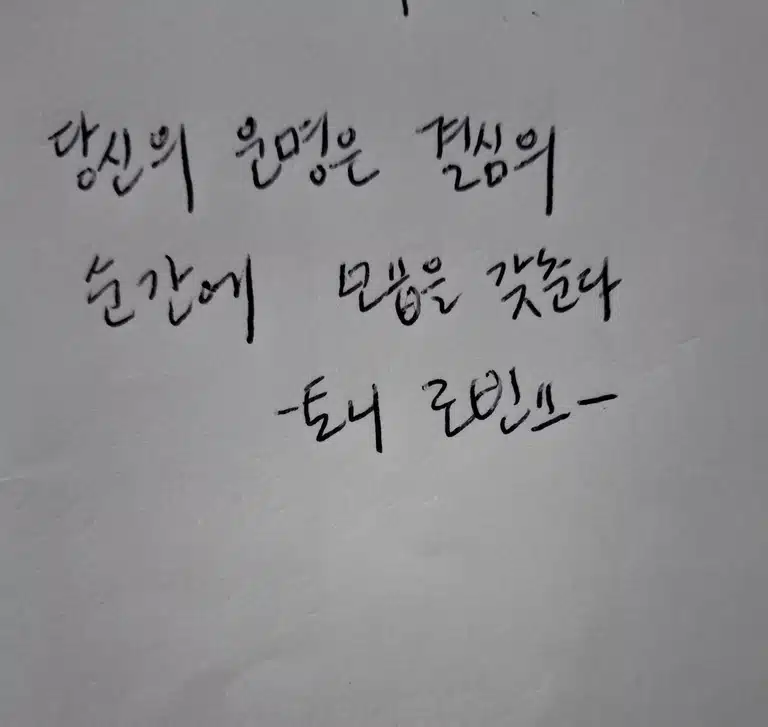 당신의 운명은 결심의
순간에 모습을 갖춘다
-토니 로빈스-